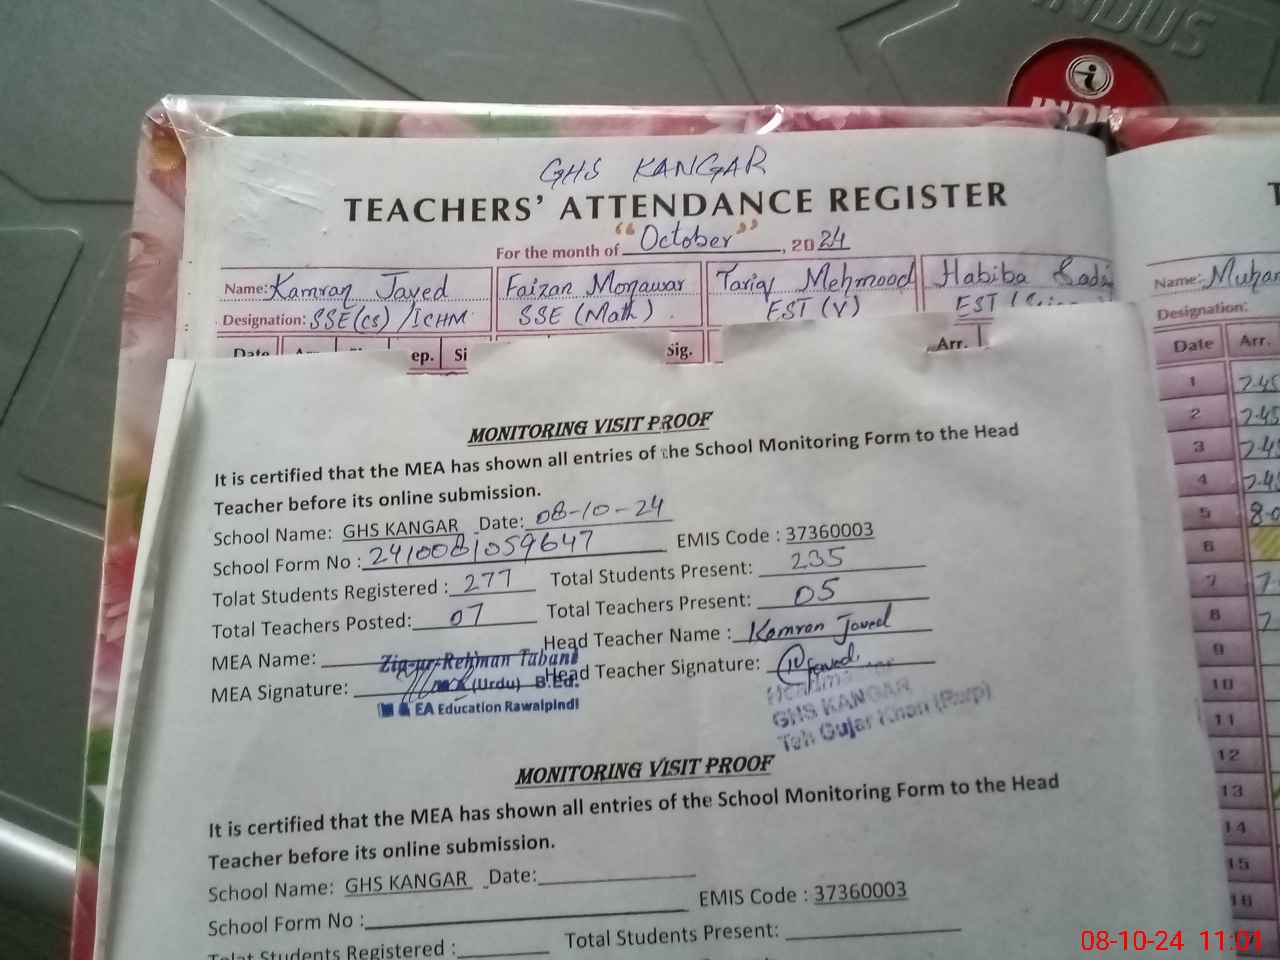 INDUS
INDUS
GHS KANGAR
TEACHERS' ATTENDANCE REGISTER
For the month of "October", 2024
Name: Kamran Javed Faizan Monawar Tariq Mehmood Habiba
Designation: SSE(cs) /ICHM SSE (Math). EST (V) EST
Date ep. Si Sig. Arr.
MONITORING VISIT PROOF
It is certified that the MEA has shown all entries of the School Monitoring Form to the Head
Teacher before its online submission.
School Name: GHS KANGAR Date: 08-10-24
School Form No : 2410081059647 EMIS Code : 37360003
Tolat Students Registered : 277 Total Students Present: 235
Total Teachers Posted: 07 Total Teachers Present: 05
MEA Name: Zia-ur-Rehman Tabani Head Teacher Name : Kamran Javed
MEA Signature: (Urdu) B.Ed. Head Teacher Signature: Javed
EA Education Rawalpindi
GHS KANGAR
Teh Gujar Khan (Rwp)
MONITORING VISIT PROOF
It is certified that the MEA has shown all entries of the School Monitoring Form to the Head
Teacher before its online submission.
School Name: GHS KANGAR Date:
School Form No : EMIS Code : 37360003
Tolat Students Registered : Total Students Present:
T
Name:
Designation:
Date Arr.
1 7-45
2 7-45
3 7-45
4 7-45
5
6
7
8
9
10
11
12
13
14
15
16
08-10-24 11:01